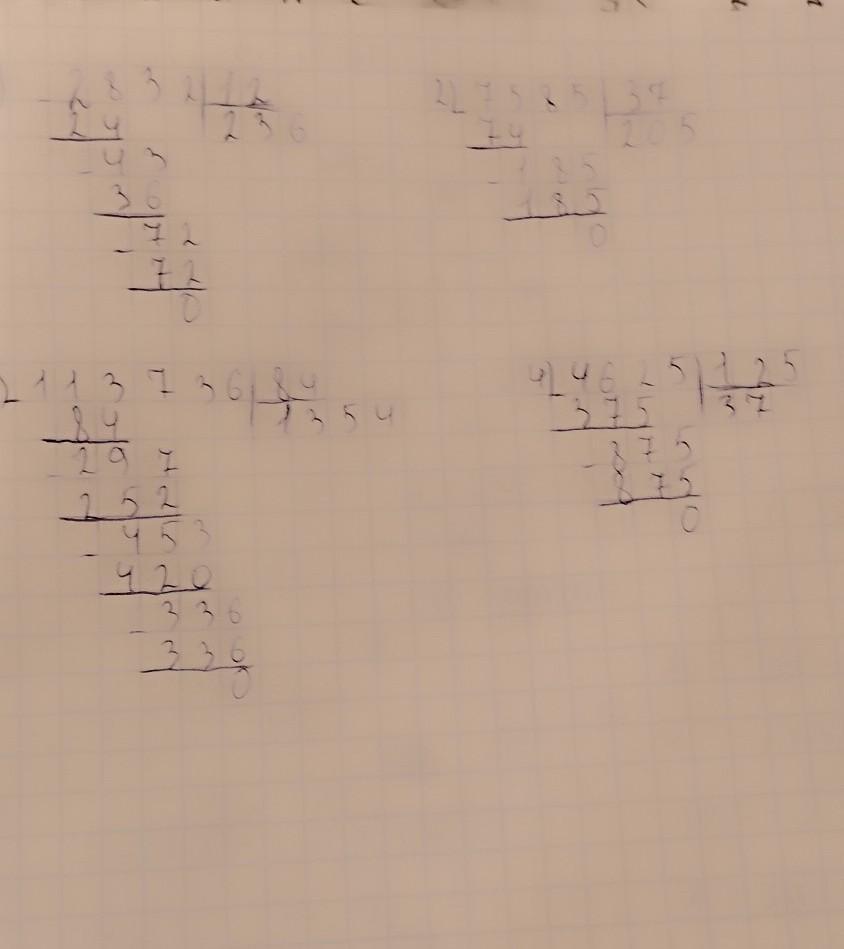 2832 12
24 236
43
36
72
72
0
2) 7585 37
74 205
185
185
0
113736 84
84 1354
297
252
453
420
336
336
0
4) 4625 125
375 37
875
875
0